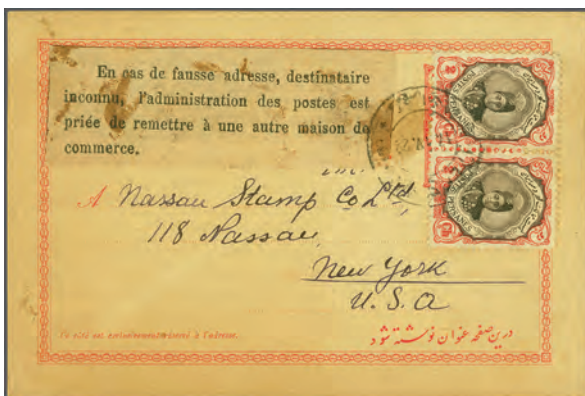 En cas de fausse adresse, destinataire
inconnu, l'administration des postes est
priée de remettre à une autre maison de
commerce.
A Nassau Stamp Co Ltd.
118 Nassau,
New York
U. S. A
Ce côté est exclusivement réservé à l'adresse.
درین صفحه عنوان نوشته شود